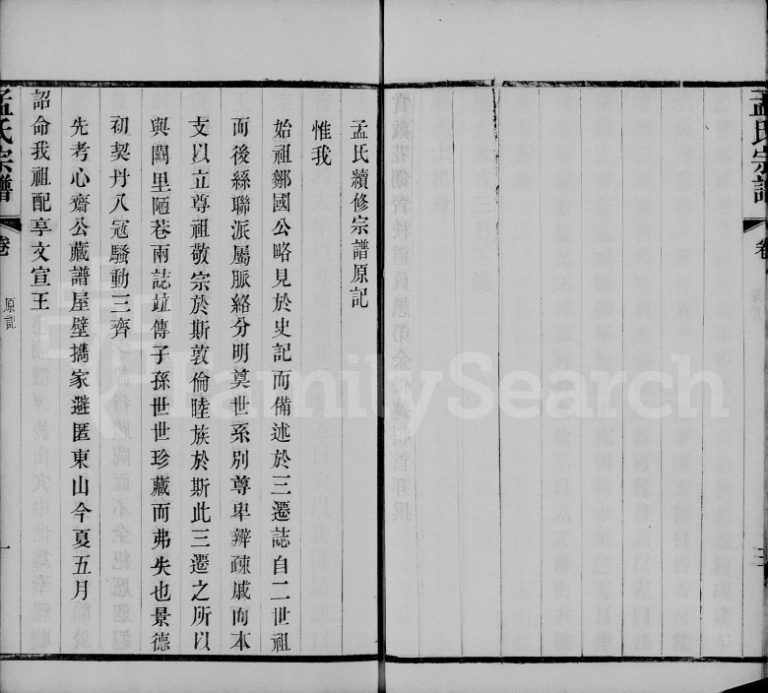 孟氏宗譜
卷
三
孟氏續修宗譜原記
惟我
始祖鄒國公略見於史記而備述於三遷誌自二世祖
而後絲聯派屬脈絡分明奠世系別尊卑辨疎戚而本
支以立尊祖敬宗於斯敦倫睦族於斯此三遷之所以
與闕里陋巷兩誌竝傳子孫世世珍藏而弗失也景德
初契丹入寇騷動三齊
先考心齋公藏譜屋壁攜家避匿東山今夏五月
詔命我祖配享文宣王
孟氏宗譜
卷
原記
一
FamilySearch